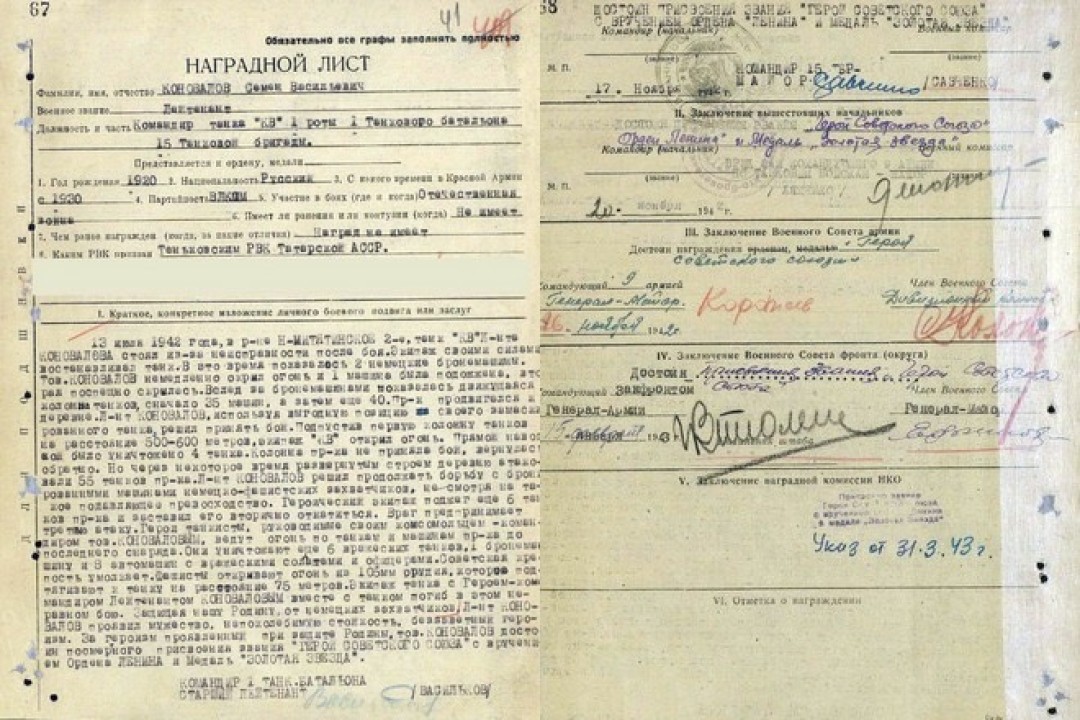 67
41
Обязательно все графы заполнять полностью
НАГРАДНОЙ ЛИСТ
Фамилия, имя, отчество КОНОВАЛОВ Семен Васильевич
Военное звание Лейтенант
Должность и часть Командир танка "КВ" 1 роты 1 Танкового батальона
15 Танковой бригады.
Представляется к ордену, медали
1. Год рождения 1920 2. Национальность Русский 3. С какого времени в Красной Армии
с 1930 4. Партийность ВЛКСМ 5. Участие в боях (где и когда) Отечественная
война 6. Имеет ли ранения или контузии (когда) Не имеет
7. Чем ранее награжден (когда, за какие отличия) Наград не имеет
8. Каким РВК призван Теньковским РВК Татарской АССР.
I. Краткое, конкретное изложение личного боевого подвига или заслуг
13 июля 1942 года, в р-не Н-МИТЯТИНСКОЕ 2-е, танк "КВ" Л-нта
КОНОВАЛОВА стоял из-за неисправности после боя. Экипаж своими силами
востанавливал танк. В это время показалось 2 немецкие бронемашины.
Тов. КОНОВАЛОВ немедленно окрыл огонь и 1 машина была подожена, вто
рая поспешно скрылась. Вслед за бронемашинами показалась движущаяся
колонна танков, сначало 35 машин, а затем еще 40. Пр-к продвигался к
деревне. Л-нт КОНОВАЛОВ, используя выгодную позицию своего замаски
рованного танка, решил принять бой. Подпустив первую колонну танков
на расстояние 500-600 метров, экипаж "КВ" открыл огонь. Прямой навод
кой было уничтожено 4 танка. Колонна пр-ка не приняла бой, вернулась
обратно. Но через некоторое время развернутым строем деревню атако-
вали 55 танков пр-ка. Л-нт КОНОВАЛОВ решил продолжать борьбу с брони
рованными машинами немецко-фашистских захватчиков, не смотря на та-
кое подавляющее превосходство. Героический экипаж поджег еще 6 тан
ков пр-ка и заставил его вторично откатиться. Враг предпринимает
третью атаку. Герои танкисты, руководимые своим комсомольцем -коман
диром тов. КОНОВАЛОВЫМ, ведут огонь по танкам и машинам пр-ка до
последнего снаряда. Они уничтожают еще 6 вражеских танков, 1 бронема
шину и 8 автомашин с вражескими солдатами и офицерами. Советская кре
пость умолкает. Фашисты открывают огонь из 105мм орудия, которое под
тягивают к танку на расстояние 75 метров. Экипаж танка с Героем-кома
мандиром Лейтенантом КОНОВАЛОВЫМ вместе с танком погиб в этом не-
равном бою. Защищая нашу Родину, от немецких захватчиков, Л-нт КОНО-
ВАЛОВ проявил мужество, непоколебимую стойкость, беззаветный геро-
изм. За героизм проявленный при защите Родины, тов. КОНОВАЛОВ досто
ин посмертно присвоения звания "ГЕРОЙ СОВЕТСКОГО СОЮЗА" с вручени
ем Ордена ЛЕНИНА и Медаль "ЗОЛОТАЯ ЗВЕЗДА".
КОМАНДИР 1 ТАНК.БАТАЛЬОНА
СТАРШИЙ ЛЕЙТЕНАНТ /ВАСИЛЬКОВ/
68
ДОСТОИН ПРИСВОЕНИЯ ЗВАНИЯ "ГЕРОЙ СОВЕТСКОГО СОЮЗА"
С ВРУЧЕНИЕМ ОРДЕНА "ЛЕНИНА" И МЕДАЛЬ "ЗОЛОТАЯ ЗВЕЗДА"
Командир (начальник) Военный комиссар
(звание) (звание)
М. П. КОМАНДИР 15 БР-
МАЙОР /САВЧЕНКО/
17. Ноября
II. Заключение вышестоящих начальников
"Герой Советского Союза"
Орден Ленина" и Медаль "Золотая Звезда"
Командир (начальник) Военный комиссар
(звание) (звание)
М. П.
20 ноября 1942 г.
III. Заключение Военного Совета армии
Достоин награждения орденом, медалью "Героя
Советского союза"
Командующий 9 армией Член Военного Совета
Генерал-Майор. Коротеев
26. ноября 1942 г.
IV. Заключение Военного Совета фронта (округа)
Достоин звания Герой Советского
Союза
Командующий Закфронтом Член Военного Совета
Генерал-Армии Генерал-Майор
15 февраля 1943
V. Заключение наградной комиссии НКО
Присвоено звание
Героя Советского Союза
с вручением ордена Ленина
и медали "Золотая Звезда"
Указ от 31.3.43 г.
VI. Отметка о награждении